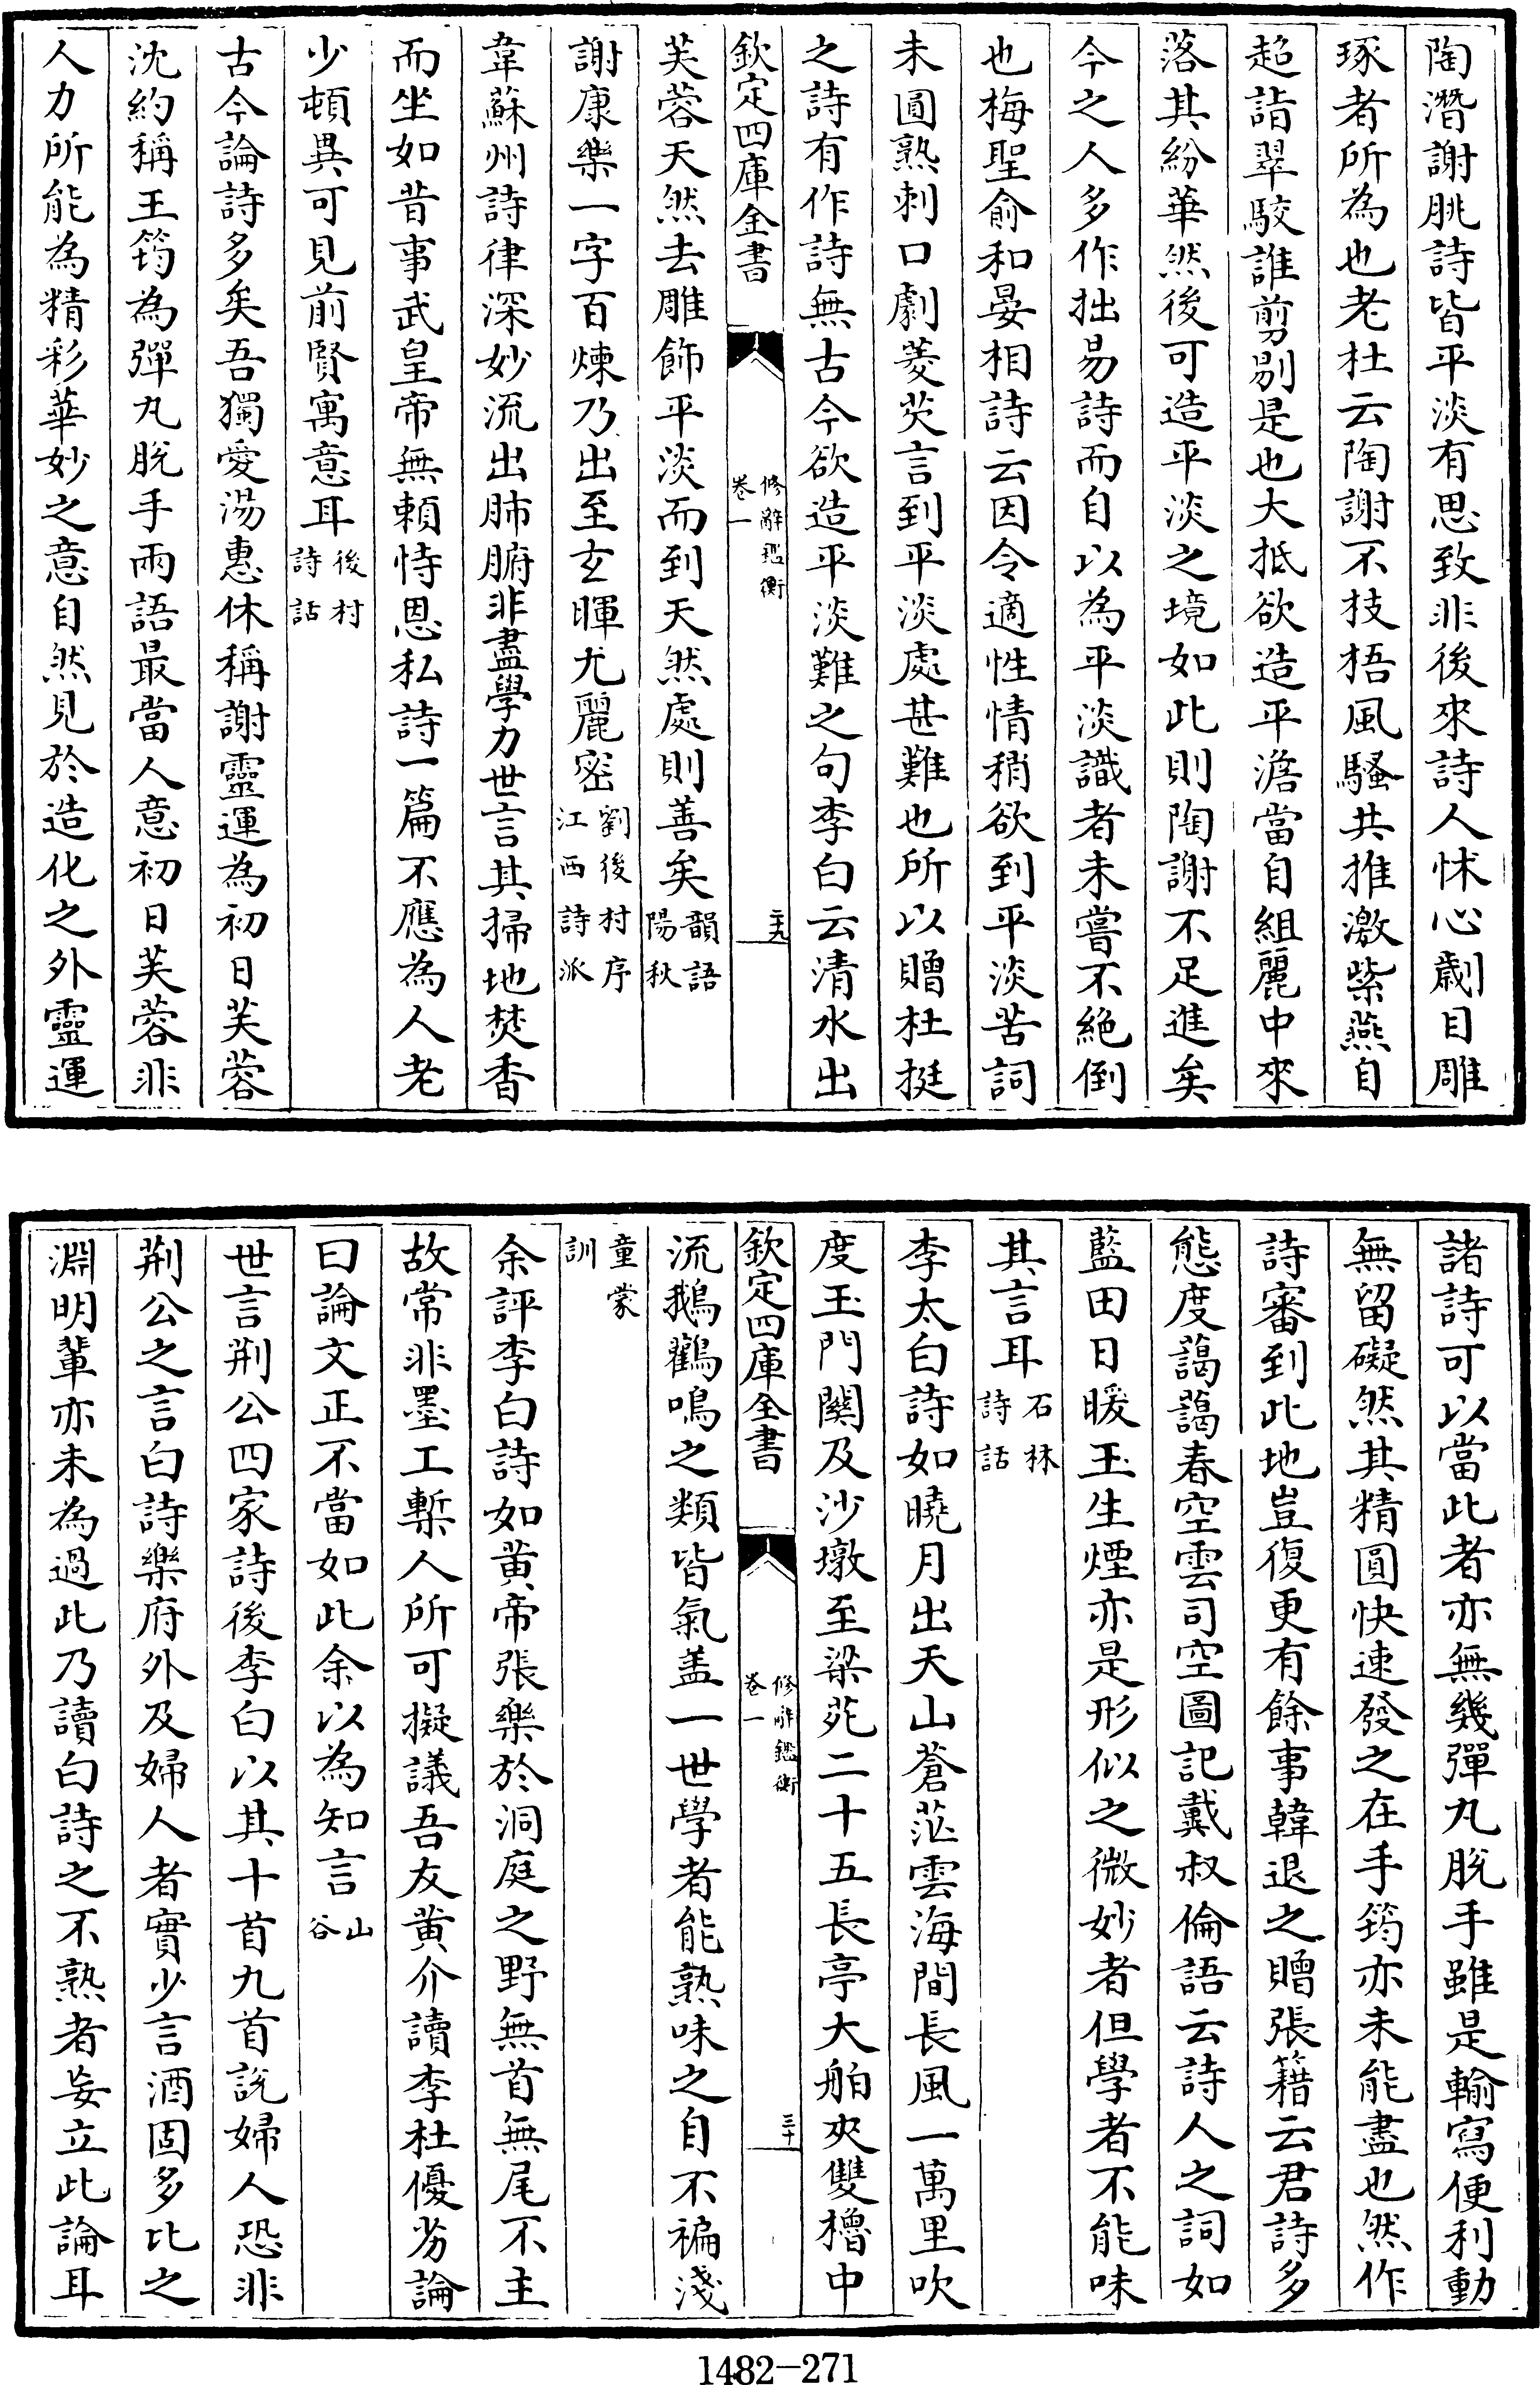 陶潛謝朓詩皆平淡有思致非後來詩人怵心劌目雕
琢者所為也老杜云陶謝不枝梧風騷共推激紫燕自
超詣翠駮誰剪剔是也大抵欲造平澹當自組麗中來
落其紛華然後可造平淡之境如此則陶謝不足進矣
今之人多作拙易詩而自以為平淡識者未嘗不絶倒
也梅聖俞和晏相詩云因令適性情稍欲到平淡苦詞
未圓熟刺口劇菱芡言到平淡處甚難也所以贈杜挺
之詩有作詩無古今欲造平淡難之句李白云清水出
欽定四庫全書
修辭鑑衡
卷一
二十九
芙蓉天然去雕飾平淡而到天然處則善矣韻語陽秋
謝康樂一字百煉乃出至玄暉尤麗密劉後村序江西詩派
韋蘇州詩律深妙流出肺腑非盡學力世言其掃地焚香
而坐如昔事武皇帝無賴恃恩私詩一篇不應為人老
少頓異可見前賢寓意耳後村詩話
古今論詩多矣吾獨愛湯惠休稱謝靈運為初日芙蓉
沈約稱王筠為彈丸脫手兩語最當人意初日芙蓉非
人力所能為精彩華妙之意自然見於造化之外靈運
諸詩可以當此者亦無幾彈丸脫手雖是輸寫便利動
無留礙然其精圓快速發之在手筠亦未能盡也然作
詩審到此地豈復更有餘事韓退之贈張籍云君詩多
態度藹藹春空雲司空圖記戴叔倫語云詩人之詞如
藍田日暖玉生煙亦是形似之微妙者但學者不能味
其言耳石林詩話
李太白詩如曉月出天山蒼茫雲海間長風一萬里吹
度玉門關及沙墩至梁苑二十五長亭大舶夾雙櫓中
欽定四庫全書
修辭鑑衡
卷一
三十
流鵝鸛鳴之類皆氣盖一世學者能熟味之自不褊淺
童蒙訓
余評李白詩如黄帝張樂於洞庭之野無首無尾不主
故常非墨工槧人所可擬議吾友黄介讀李杜優劣論
曰論文正不當如此余以為知言山谷
世言荆公四家詩後李白以其十首九首說婦人恐非
荆公之言白詩樂府外及婦人者實少言酒固多比之
淵明輩亦未為過此乃讀白詩之不熟者妄立此論耳
1482-271